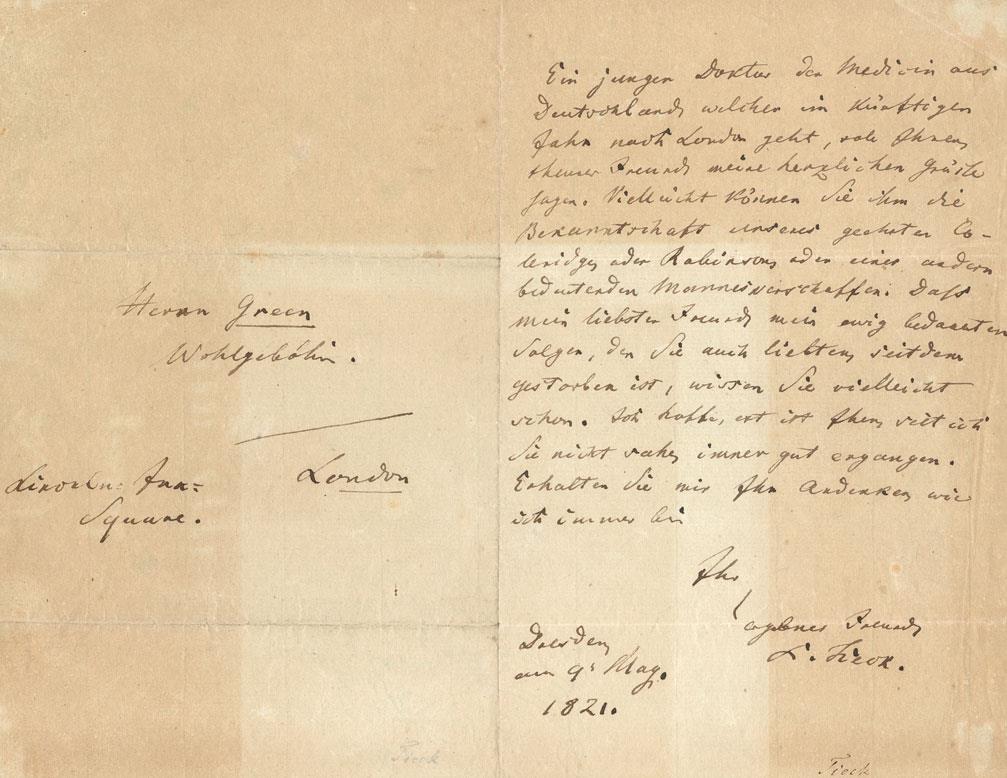 Herrn Green
Wohlgebohrn.
London
Lincoln-Inn-
Square.
Ein junger Doktor der Medicin aus
Deutschland, welcher im künftigen
Jahr nach London geht, soll Ihnen,
theurer Freund meine herzlichen Grüße
sagen. Vielleicht können Sie ihm die
Bekanntschaft unseres geehrten Co-
leridge, oder Robinson, oder eines andern
bedeutenden Mannes verschaffen. Daß
mein liebster Freund, mein ewig
Solger, den Sie auch liebten, seitdem
gestorben ist, wissen Sie vielleicht
schon. Ich hoffe, es ist Ihnen, seit ich
Sie nicht sahe, immer gut ergangen.
Erhalten Sie mir Ihr Andenken, wie
ich immer bin
Ihr
ergebner Freund,
L. Tieck.
Dresden,
am 9t May.
1821.
Tieck
Tieck